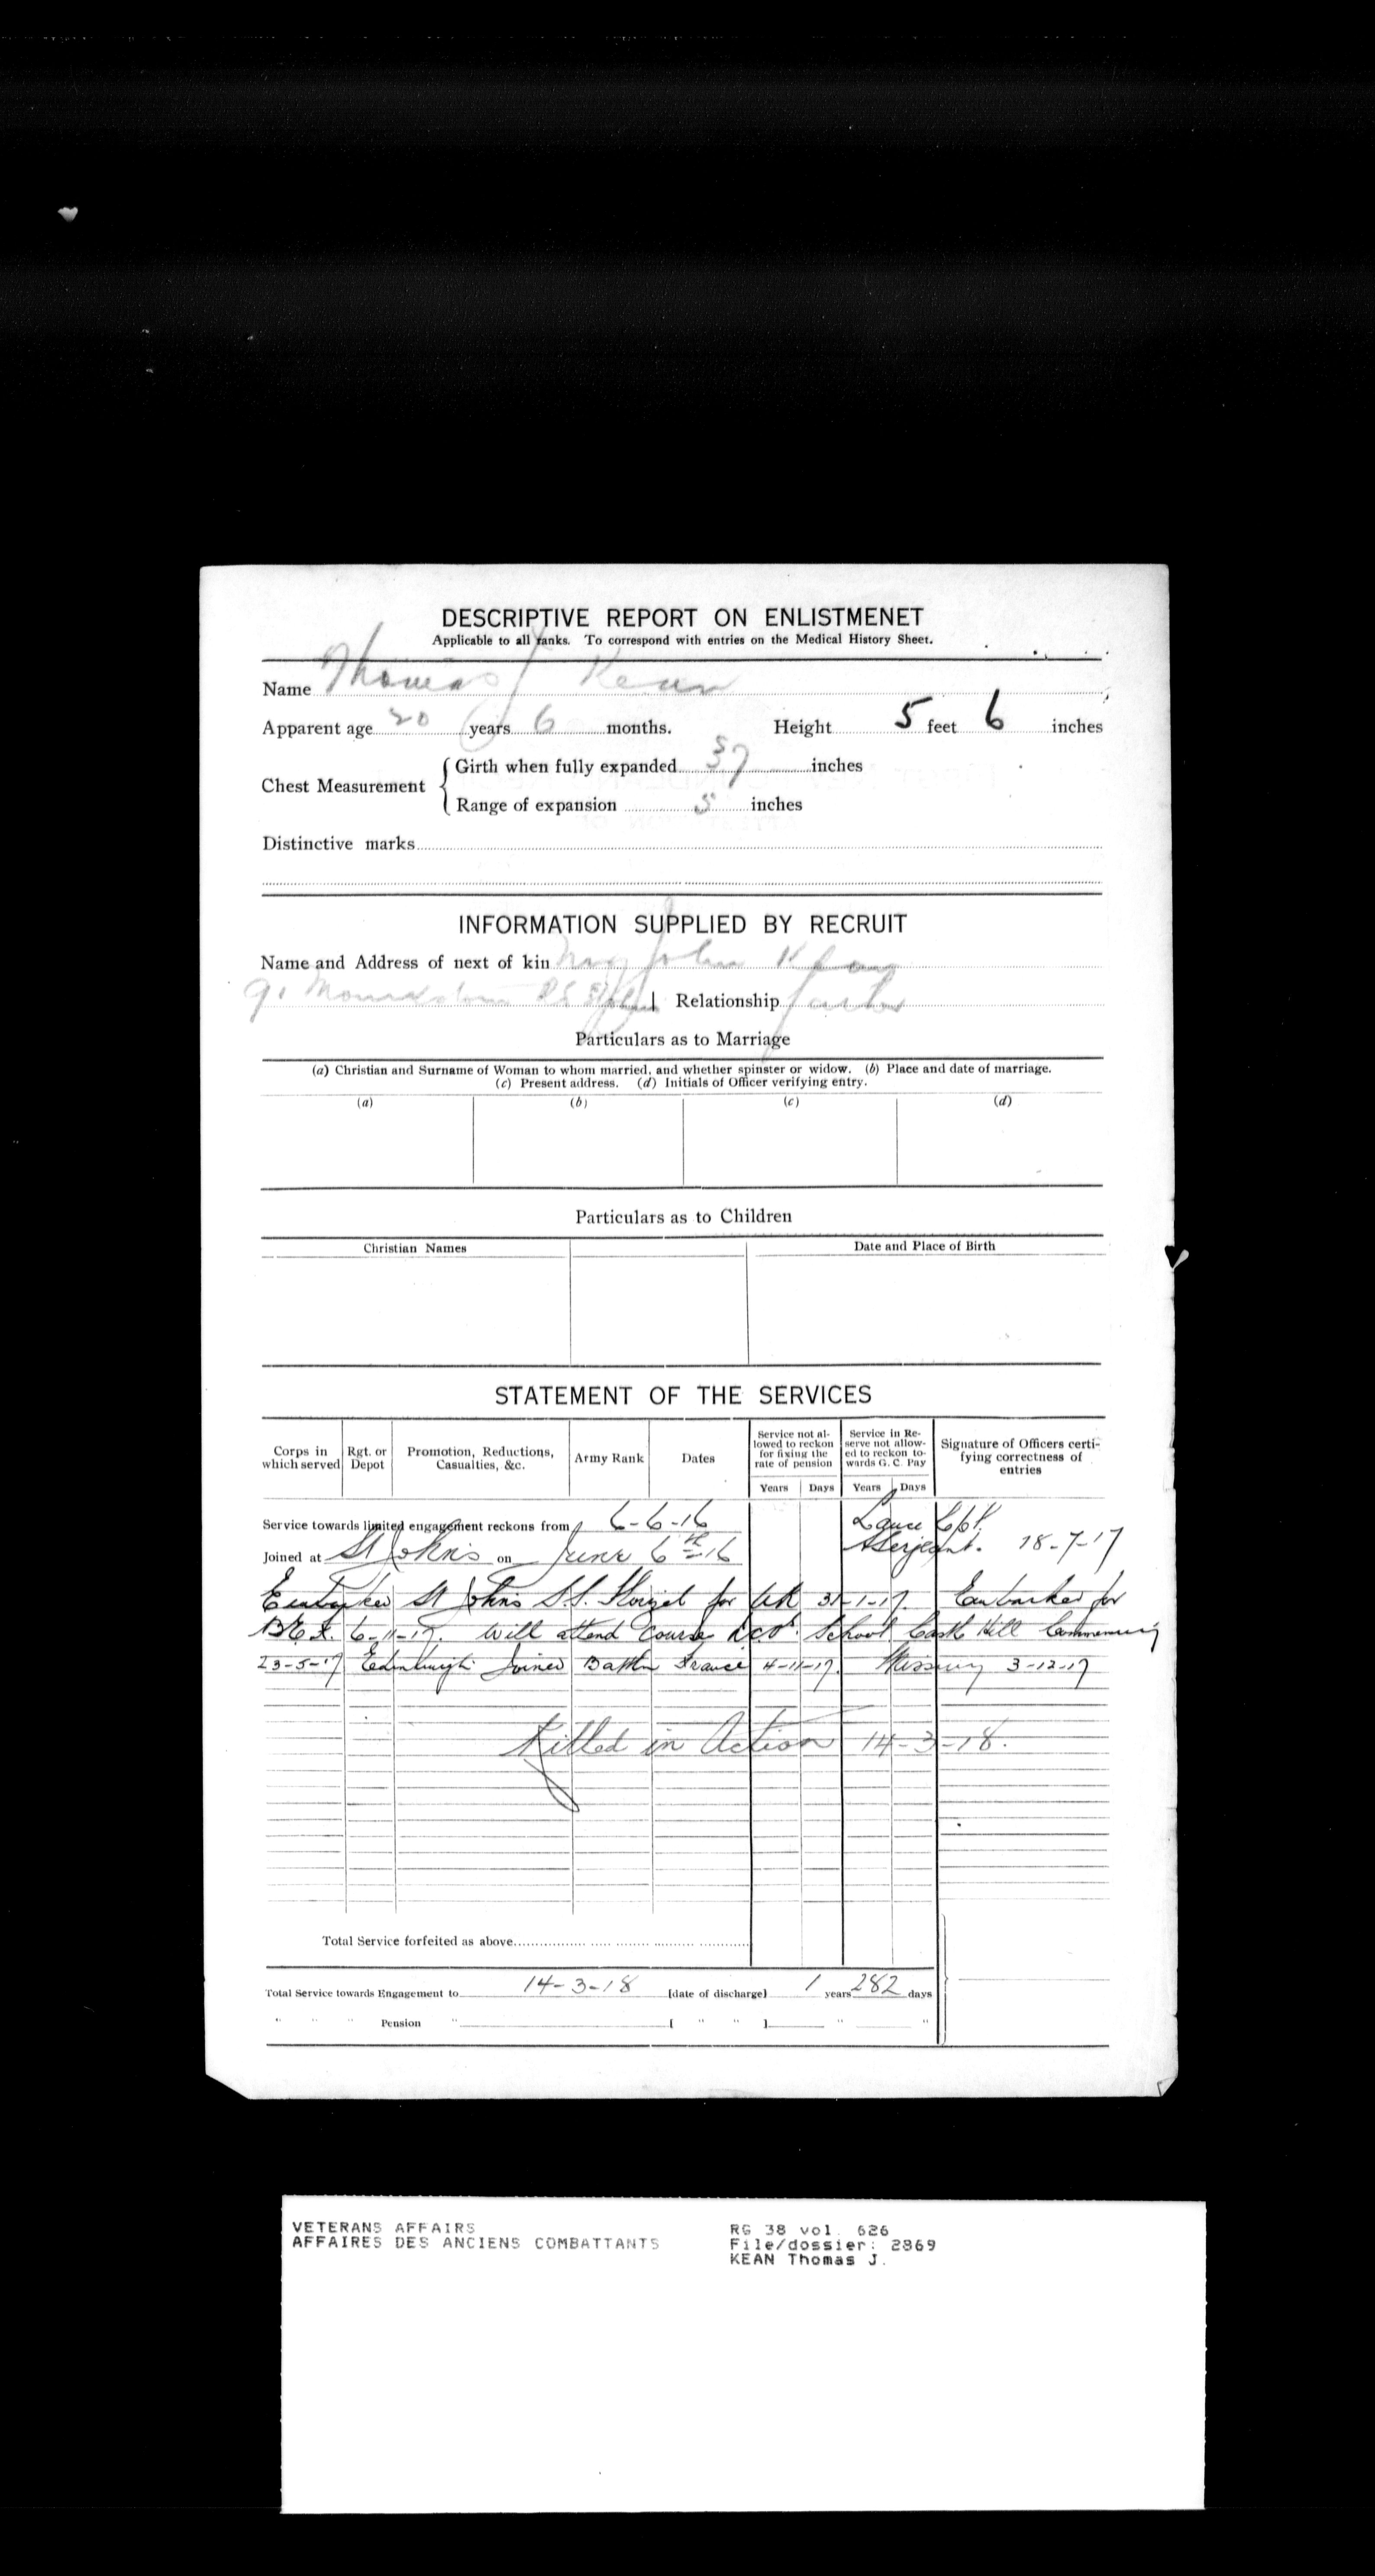 DESCRIPTIVE REPORT ON ENLISTMENET
Applicable to all ranks. To correspond with entries on the Medical History Sheet.
Name Thomas J Kean
Apparent age 20 years 6 months. Height 5 feet 6 inches
Chest Measurement { Girth when fully expanded 37 inches
Range of expansion 5 inches
Distinctive marks
INFORMATION SUPPLIED BY RECRUIT
Name and Address of next of kin John
91 St Johns | Relationship
Particulars as to Marriage
(a) Christian and Surname of Woman to whom married, and whether spinster or widow. (b) Place and date of marriage.
(c) Present address. (d) Initials of Officer verifying entry.
(a) (b) (c) (d)
Particulars as to Children
Christian Names Date and Place of Birth
STATEMENT OF THE SERVICES
Corps in which served Rgt. or Depot Promotion, Reductions, Casualties, &c. Army Rank Dates Service not allowed to reckon for fixing the rate of pension Service in Reserve not allowed to reckon towards G. C. Pay Signature of Officers certifying correctness of entries
Years Days Years Days
Service towards limited engagement reckons from 6-6-16 Lance Cpl.
Joined at St John's on June 6th-16 A/Serjeant. 18-7-17
Embarked St Johns S.S. Florizel for UK 31-1-17. Embarked for
B.E.F. 6-11-17. Will attend course School Castle Hill Commencing
23-5-17 Edinburgh. Joined Battn France 4-11-17. Missing 3-12-17
Killed in Action 14-3-18.
Total Service forfeited as above
Total Service towards Engagement to 14-3-18 [date of discharge] 1 years 282 days
" " " Pension " [ " " ] " "
VETERANS AFFAIRS RG 38 vol. 626
AFFAIRES DES ANCIENS COMBATTANTS File/dossier: 2869
KEAN Thomas J.